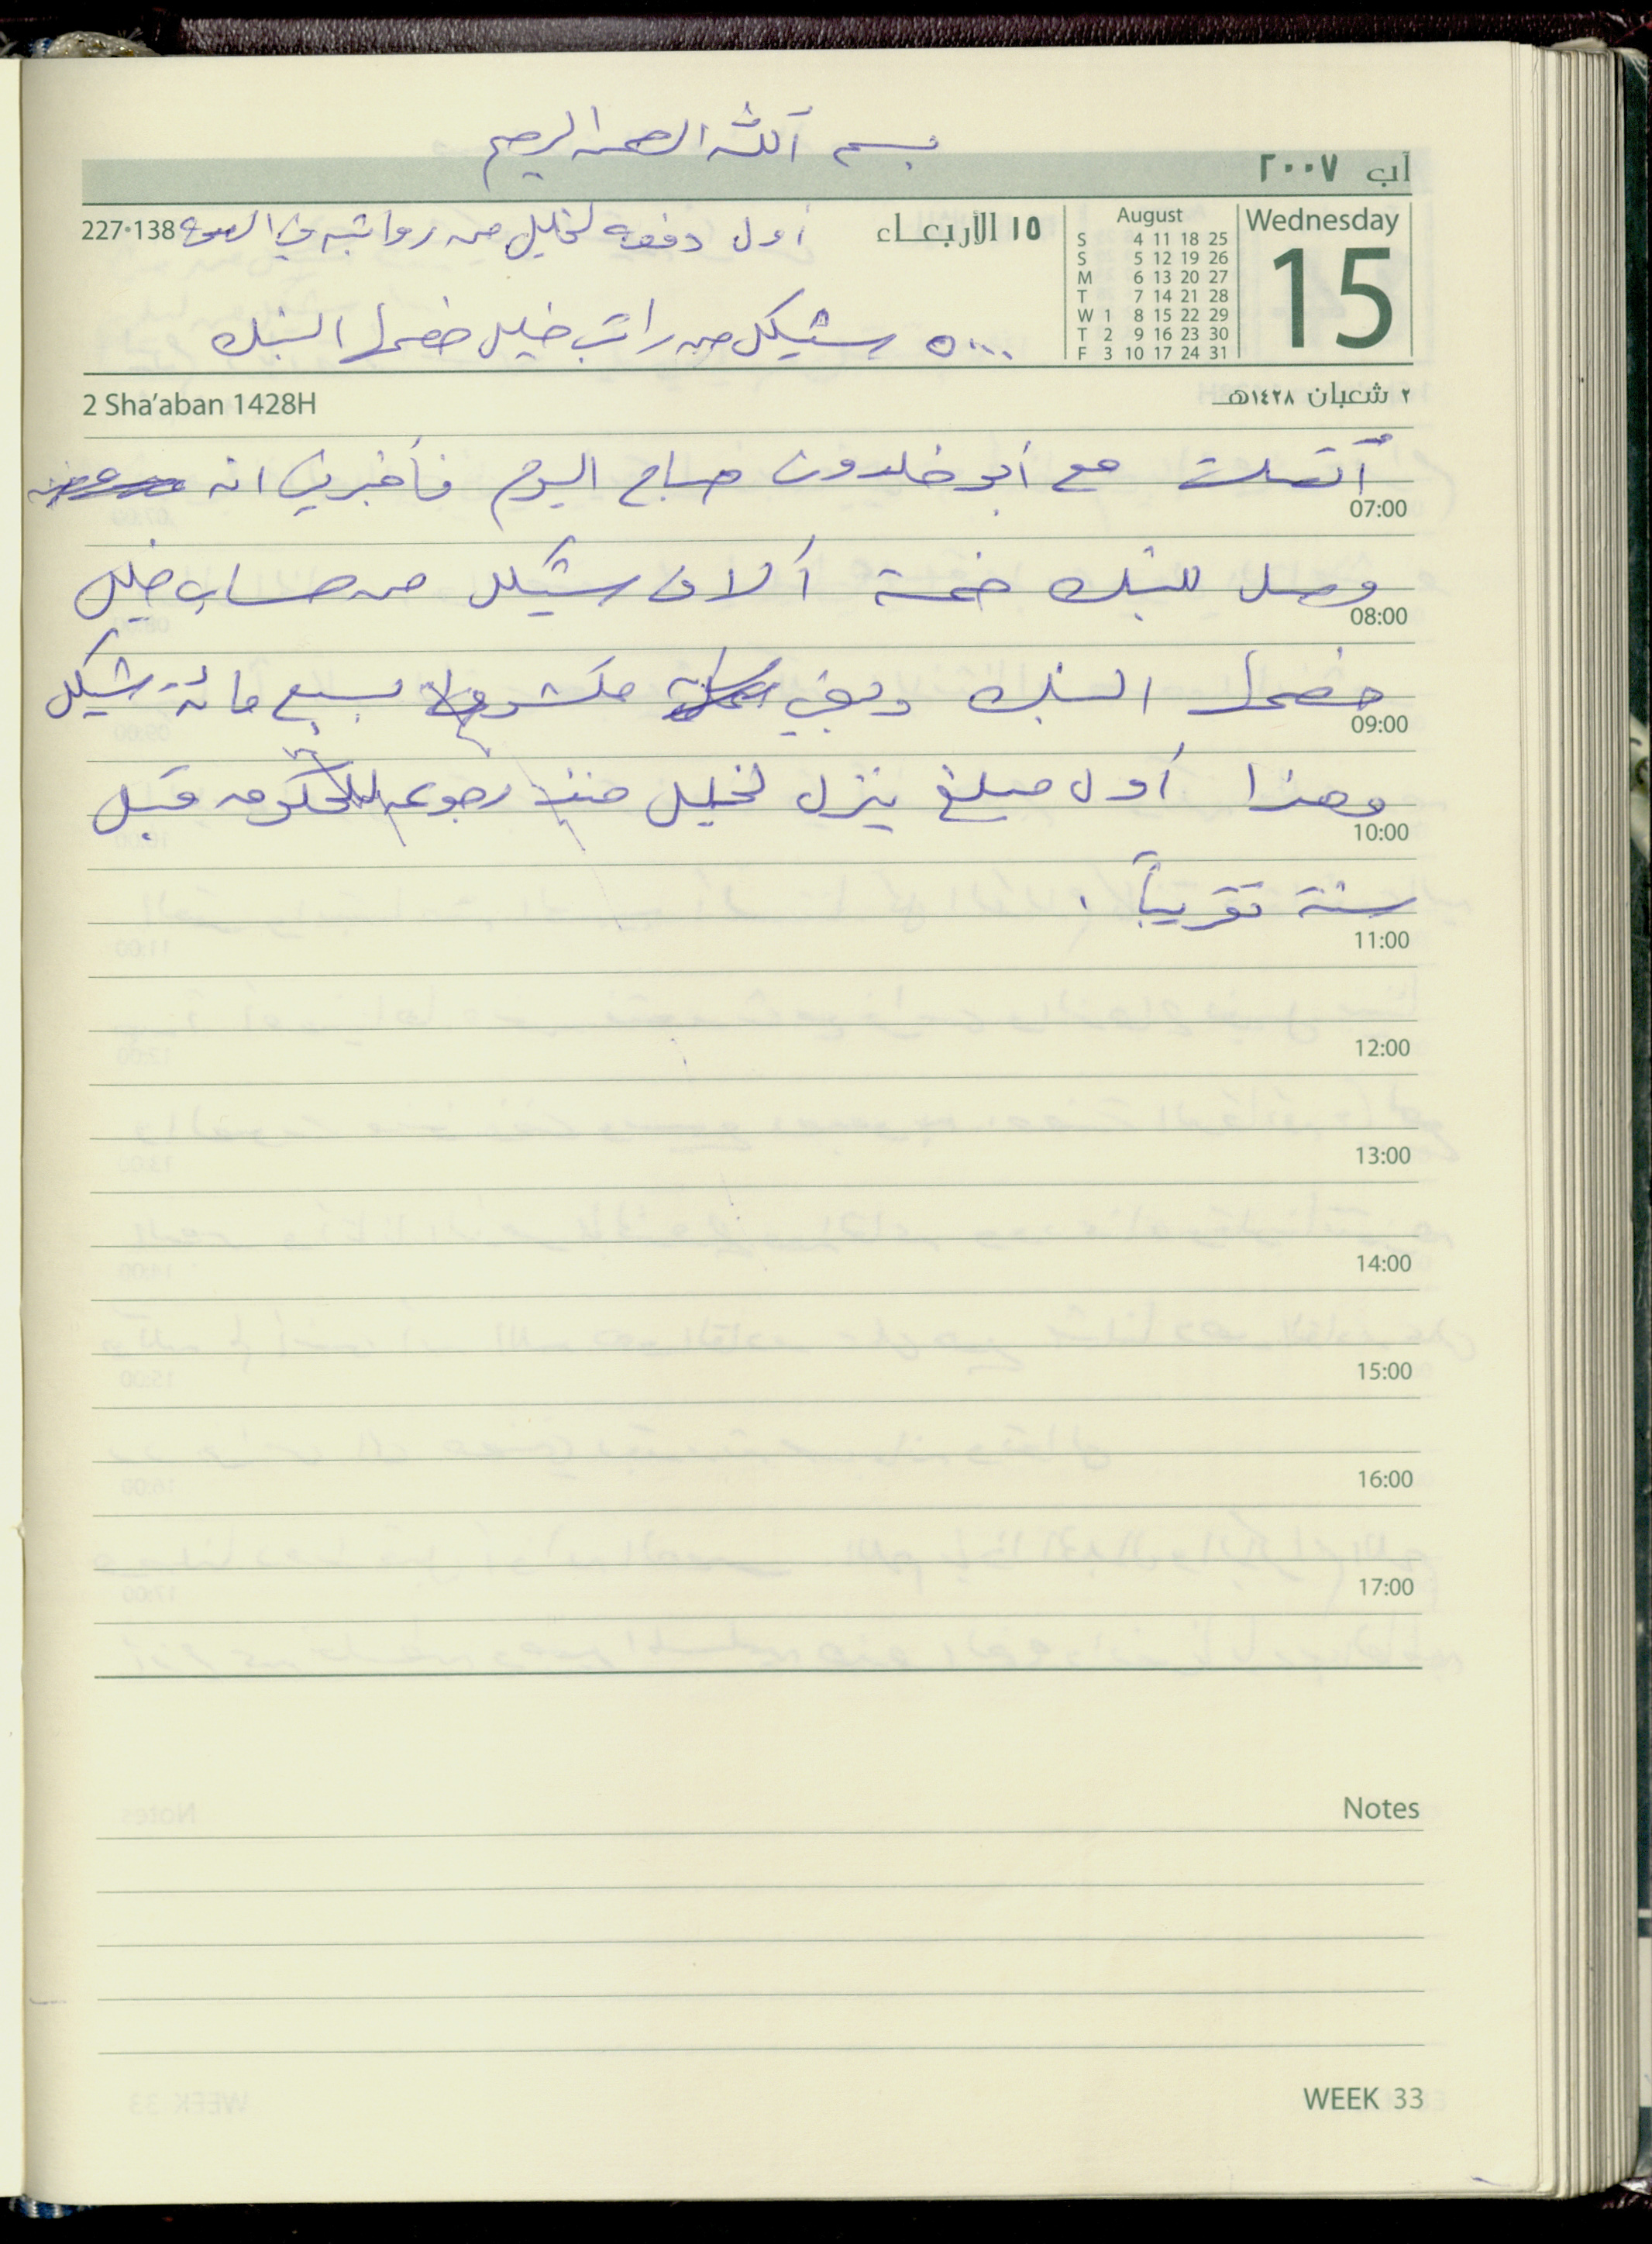 بسم الله الرحمن الرحيم
آب ٢٠٠٧
Wednesday
15
August
S 4 11 18 25
S 5 12 19 26
M 6 13 20 27
T 7 14 21 28
W 1 8 15 22 29
T 2 9 16 23 30
F 3 10 17 24 31
١٥ الأربعـاء
227-138
أول دفعة لخليل من رواتبه في
٥٠٠٠ شيكل من راتب خليل خصمها البنك
٢ شعبان ١٤٢٨هـ
2 Sha'aban 1428H
أتصلت مع أبو خلدون صباح اليوم فأخبرني انه
07:00
وصل للبنك خمسة ألاف شيكل من حساب خليل
08:00
خصمها البنك وبقي مكشوف بسبع مائة شيكل
09:00
وهذا أول مبلغ ينزل لخليل منذ رجوعه للحكومه قبل
10:00
سنة تقريباً .
11:00
12:00
13:00
14:00
15:00
16:00
17:00
Notes
WEEK 33